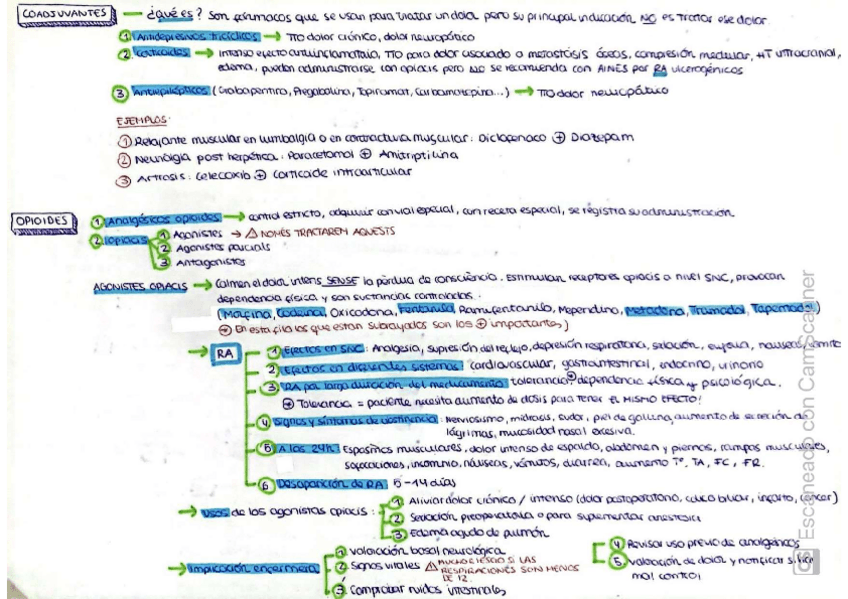 COADJUVANTES → ¿qué es? Son fármacos que se usan para tratar un dolor pero su principal indicación NO es tratar ese dolor.
① Antidepresivos tricíclicos → TTO dolor crónico, dolor neuropático
② Corticoides → Intenso efecto antiinflamatorio, TTO para dolor asociado a metástasis óseas, compresión medular, HT intracranial,
edema, pueden administrarse con opiacis pero NO se recomienda con AINES por RA ulcerogénicos
③ Antiepilépticos (Grabapentina, Pregabalina, Topiramat, Carbamazepina...) → TTO dolor neuropático
EJEMPLOS:
① Relajante muscular en lumbalgia o en contractura muscular: Diclofenaco ⊕ Diazepam
② Neuralgia post herpética: Paracetamol ⊕ Amitriptilina
③ Artrosis: Celecoxib ⊕ Corticoide intraarticular
OPIOIDES
① Analgésicos opioides → control estricto, adquirir con vial especial, con receta especial, se registra su administración
2. Opiacis
① Agonistes → ⚠ NOMÉS TRACTAREM AQUESTS
② Agonistes parcials
③ Antagonistes
AGONISTES OPIACIS → Calmen el dolor intens SENSE la pèrdua de consciència. Estimulan receptores opiacis a nivel SNC, provocan
dependencia física y son sustancias controladas.
(Morfina, Codeina, Oxicodona, Fentanilo, Remifentanilo, Meperidina, Metadona, Tramadol, Tapentadol)
→ En esta fila los que estan subrayados son los ⊕ importantes)
→ RA
① Efectos en SNC: Analgesia, supresión del reflejo, depresión respiratoria, sedación, eufòria, nauseas, vómitos
2) Efectos en diferentes sistemas: cardiovascular, gastrointestinal, endocrino, urinario
③ RA por larga duración del medicamento: tolerancia ⊕ dependencia física y psicológica.
→ Tolerancia = paciente necesita aumento de dosis para tener el MISMO EFECTO!
④ Signos y síntomas de abstinencia: Nerviosismo, midriasis, sudor, piel de gallina, aumento de secreción de
lágrimas, mucosidad nasal excesiva.
⑤ A las 24h: Espasmos musculares, dolor intenso de espalda, abdomen y piernas, rampas musculares,
sofocaciones, insomnio, náuseas, vómitos, diarrea, aumento Tº, TA, FC, FR.
⑥ Desaparición de RA: 5-14 días
→ Usos de los agonistas opiacis:
① Aliviar dolor crónico / intenso (dolor postoperatorio, cólico biliar, infarto, cáncer)
② Sedación preoperatoria o para suplementar anestesia
③ Edema agudo de pulmón
→ Implicación enfermera
① valoración basal neurológica
② Signos vitales ⚠ MUCHO RIESGO SI LAS
RESPIRACIONES SON MENOS
DE 12.
③ Comprobar ruidos intestinales
④ Revisar uso previo de analgésicos
⑤ valoración de dolor y notificar si hay
mal control
CS Escaneado con CamScanner